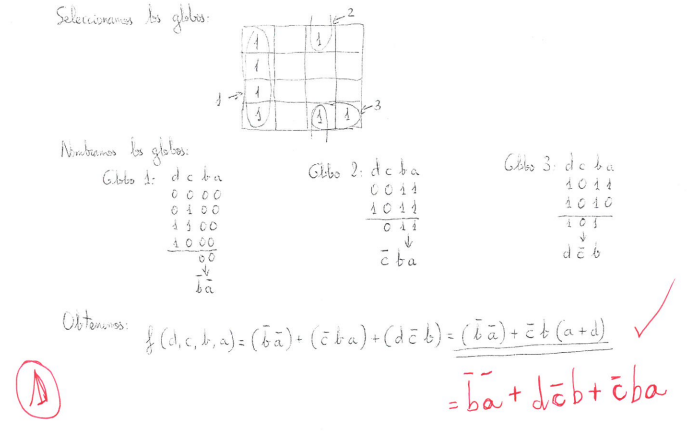 Seleccionamos los globos:
2
1 1
1
1 1
1 1 1 3
Nombramos los globos:
Globo 1: d c b a
0 0 0 0
0 1 0 0
1 1 0 0
1 0 0 0
0 0
↓
b̄ ā
Globo 2: d c b a
0 0 1 1
1 0 1 1
0 1 1
↓
c̄ b a
Globo 3: d c b a
1 0 1 1
1 0 1 0
1 0 1
↓
d c̄ b
Obtenemos:
f (d, c, b, a) = (b̄ ā) + (c̄ b a) + (d c̄ b) = (b̄ ā) + c̄ b (a + d)
= b̄ ā + d c̄ b + c̄ b a